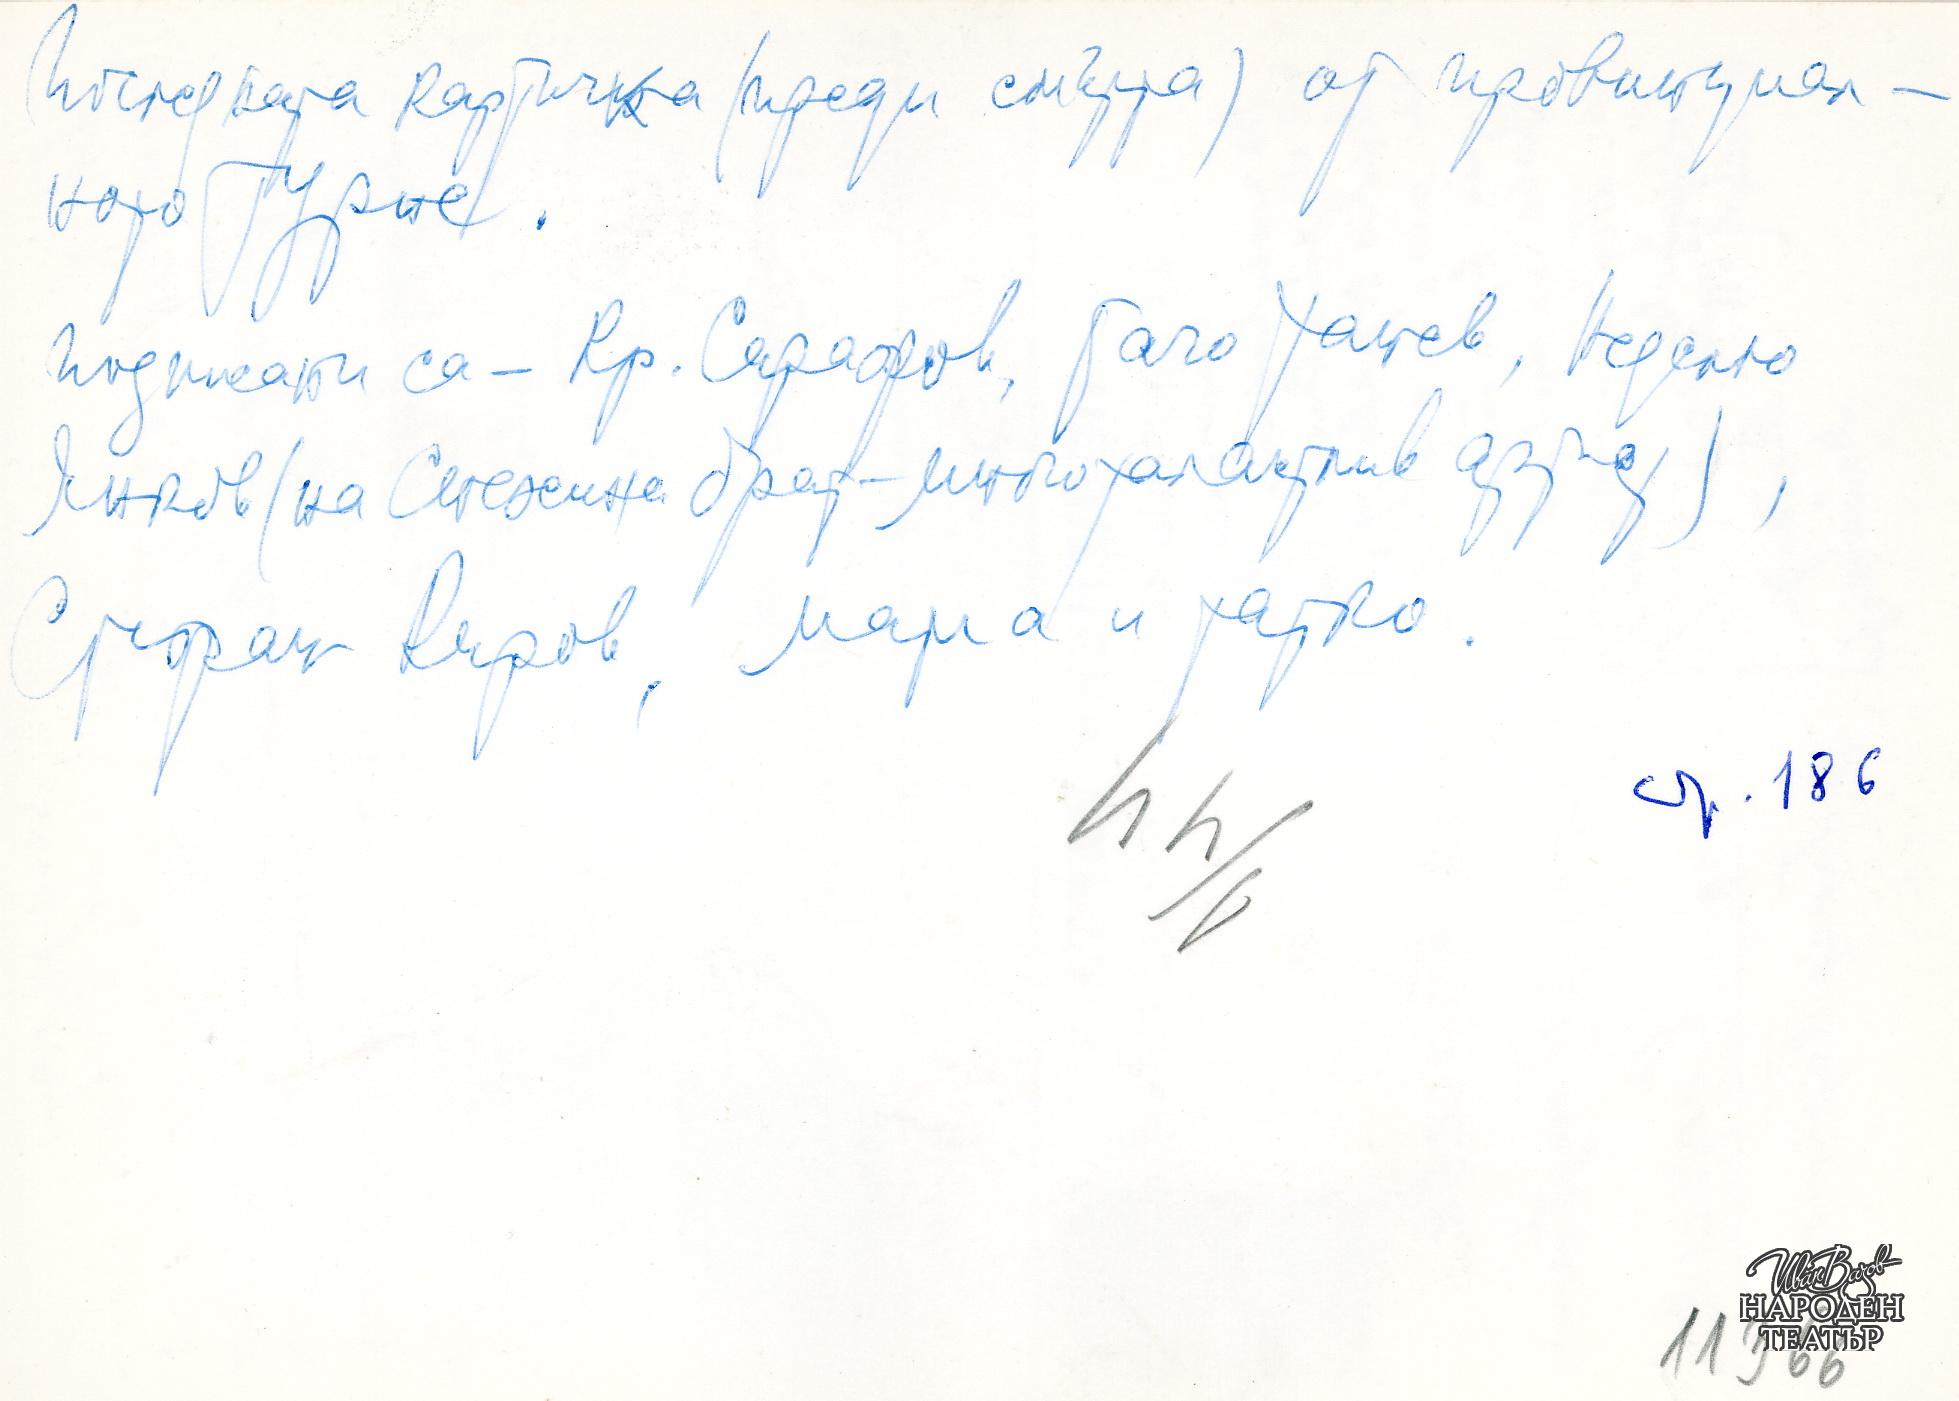 Последната картичка (преди смъртта) от провинциал-
ното турне.
Подписани са – Кр. Сарафов, Гачо Ганчев, Неделчо
Янков (на Снежина брат – много талантлив артист),
Стефан Киров, мама и татко.
стр. 186
Иван Вазов
НАРОДЕН
ТЕАТЪР